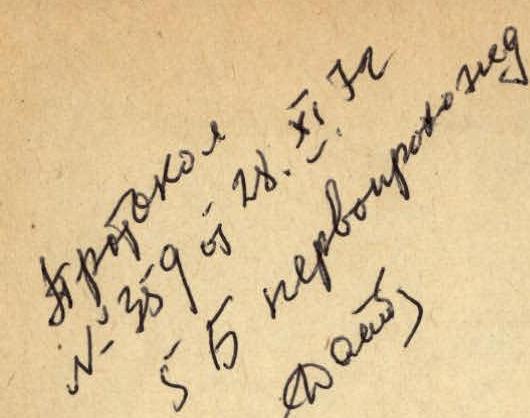 Протокол
№ 359 от 28.XI.72
5 Б первопроходец